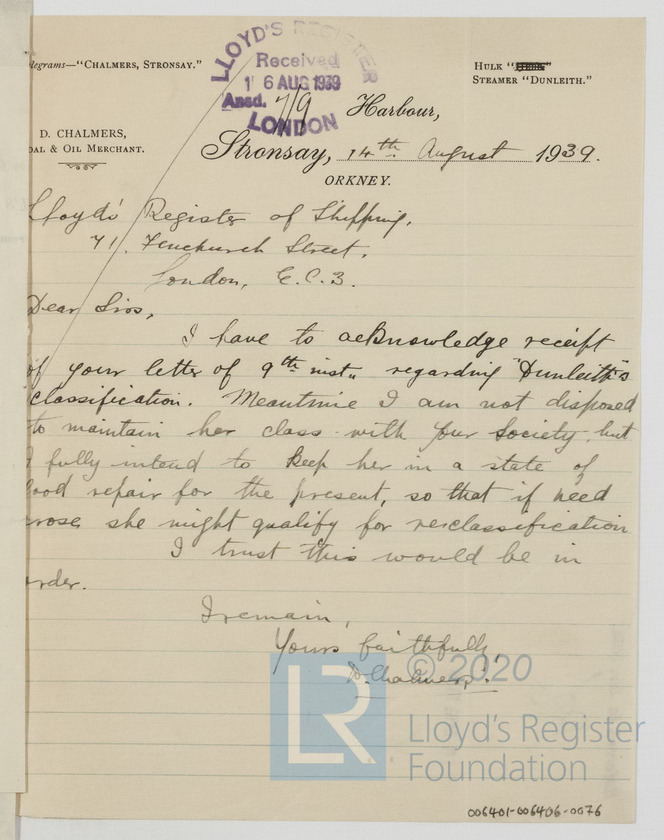 legrams—"Chalmers, Stronsay."
LLOYD'S REGISTER
Received
16 AUG 1939
Ansd. 7/9
LONDON
Hulk "
Steamer "Dunleith."
D. Chalmers,
oal & Oil Merchant.
Harbour,
Stronsay, 14th August 1939.
ORKNEY.
Lloyds' Register of Shipping,
71, Fenchurch Street,
London, E.C.3.
Dear Sirs,
I have to acknowledge receipt
of your letter of 9th inst., regarding "Dunleith"s
classification. Meantime I am not disposed
to maintain her class with your Society, but
I fully intend to keep her in a state of
good repair for the present, so that if need
arose she might qualify for reclassification
I trust this would be in
order.
I remain,
Yours faithfully,
D. Chalmers.
© 2020
LR
Lloyd's Register
Foundation
006401-006406-0076